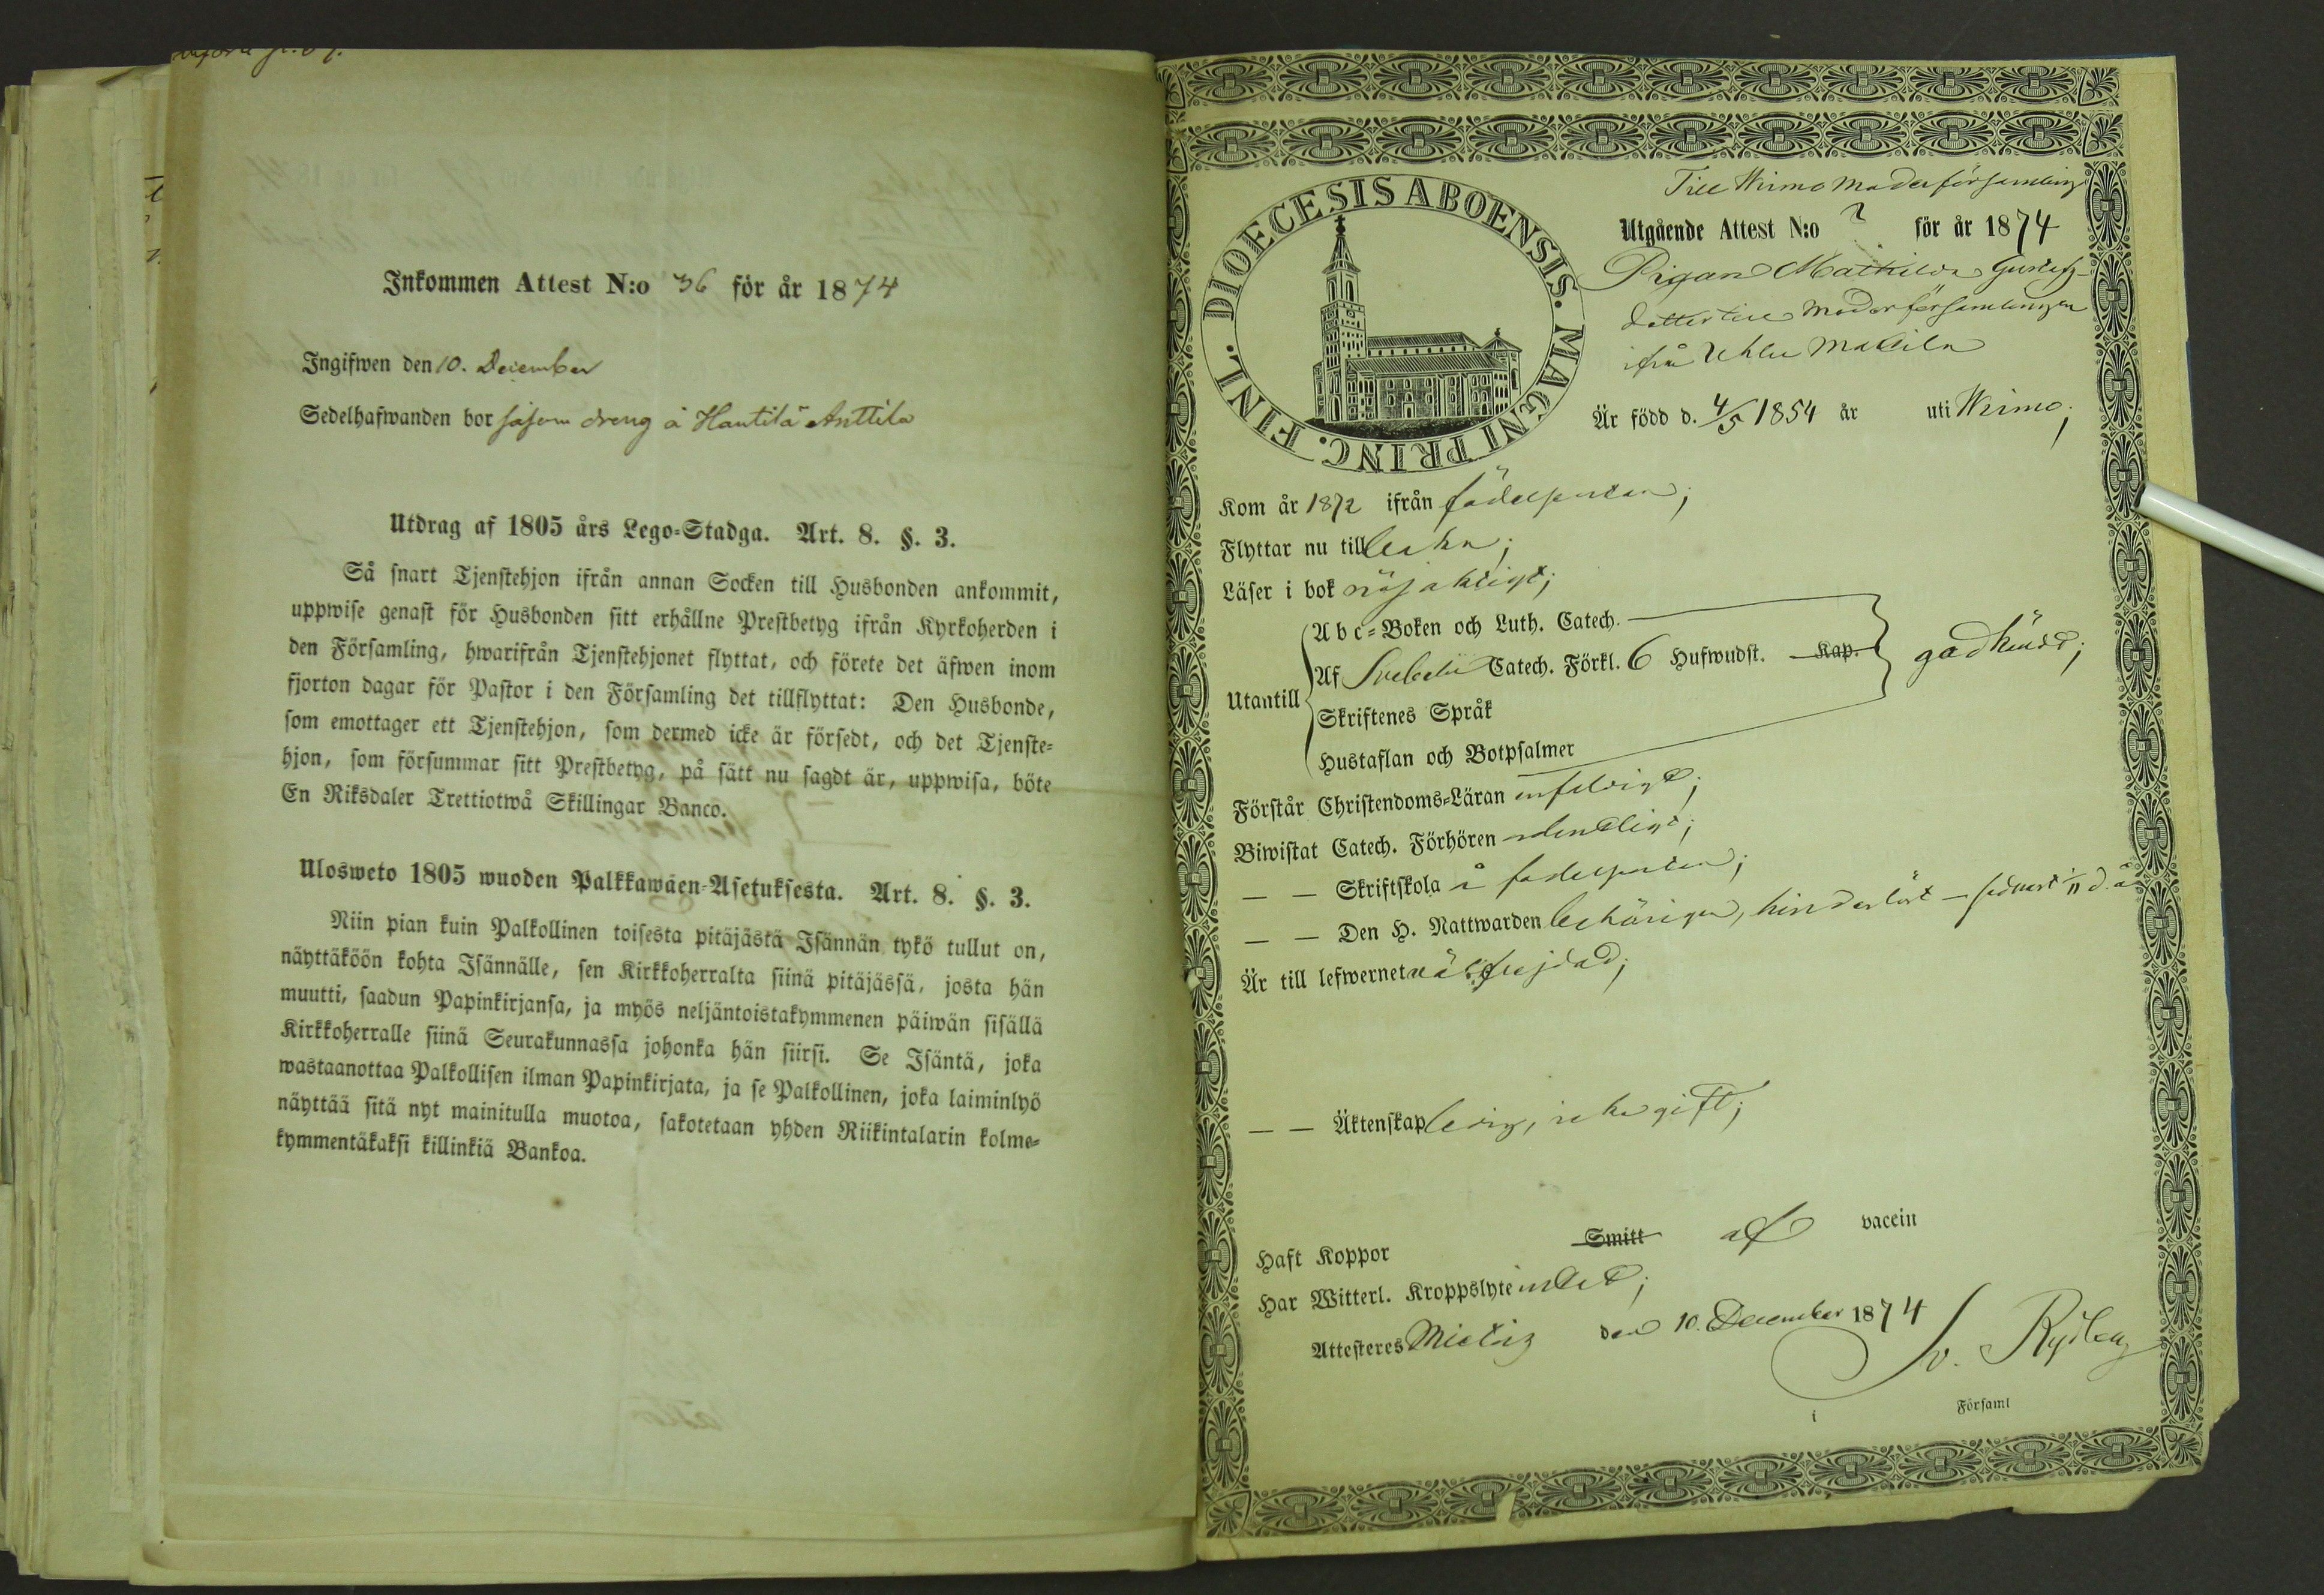 Inkommen Attest N:o 36 för år 1874
Ingifwen den 10. December
Sedelhafwanden bor såsom dreng å Hautila Anttila
Utdrag af 1805 års Lego-Stadga. Art. 8. §. 3.
Så snart Tjenstehjon ifrån annan Socken till Husbonden ankommit,
uppwise genast för Husbonden sitt erhållne Prestbetyg ifrån Kyrkoherden i
den Församling, hwarifrån Tjenstehjonet flyttat, och förete det äfwen inom
fjorton dagar för Pastor i den Församling det tillflyttat: Den Husbonde,
som emottager ett Tjenstehjon, som dermed icke är försedt, och det Tjenste-
hjon, som försummar sitt Prestbetyg, på sätt nu sagdt är, uppwisa, böte
En Riksdaler Trettiotwå Skillingar Banco.
Ulosweto 1805 wuoden Palkkawäen-Asetuksesta. Art. 8. §. 3.
Niin pian kuin Palkollinen toisesta pitäjästä Isännän tykö tullut on,
näyttäköön kohta Isännälle, sen Kirkkoherralta siinä pitäjässä, josta hän
muutti, saadun Papinkirjansa, ja myös neljäntoistakymmenen päiwän sisällä
Kirkkoherralle siinä Seurakunnassa johonka hän siirsi. Se Isäntä, joka
wastaanottaa Palkollisen ilman Papinkirjata, ja se Palkollinen, joka laiminlyö
näyttää sitä nyt mainitulla muotoa, sakotetaan yhden Riikintalarin kolme-
kymmentäkaksi killinkiä Bankoa.
DIOECESIS ABOENSIS. MAGNI PRINC. FINL.
Till Wirmo Moderförsamling
Utgående Attest N:o ? för år 1874
Pigan Mathilda Gustafs-
dotter till Moderförsamlingen
ifrån Mattila
Är född d. 4/5 1854 år uti Wirmo;
Kom år 1872 ifrån födelseorten;
Flyttar nu till
Läser i bok nöjaktigt;
Abc-Boken och Luth. Catech.
Af Svebelii Catech. Förkl. 6 Hufwudst. Kap. godkändt;
Utantill
Skriftenes Språk
Hustaflan och Botpsalmer
Förstår Christendoms-Läran enfaldigt;
Biwistat Catech. Förhören ordentligt;
— — Skriftskola å födelseorten;
— — Den H. Nattwarden behörigen, hinderlöst — sednast 1/11 d. å.
Är till lefwernet wälfrejdad;
— — Äktenskap ledig, icke gift;
Haft Koppor Smitt af vaccin
Har Witterl. Kroppslyte intet;
Attesteres Mietois den 10. December 1874
i Församl